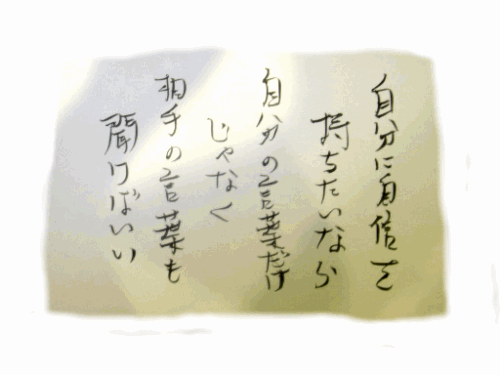 自分に自信を
持ちたいなら
自分の言葉だけ
じゃなく
相手の言葉も
聞けばいい